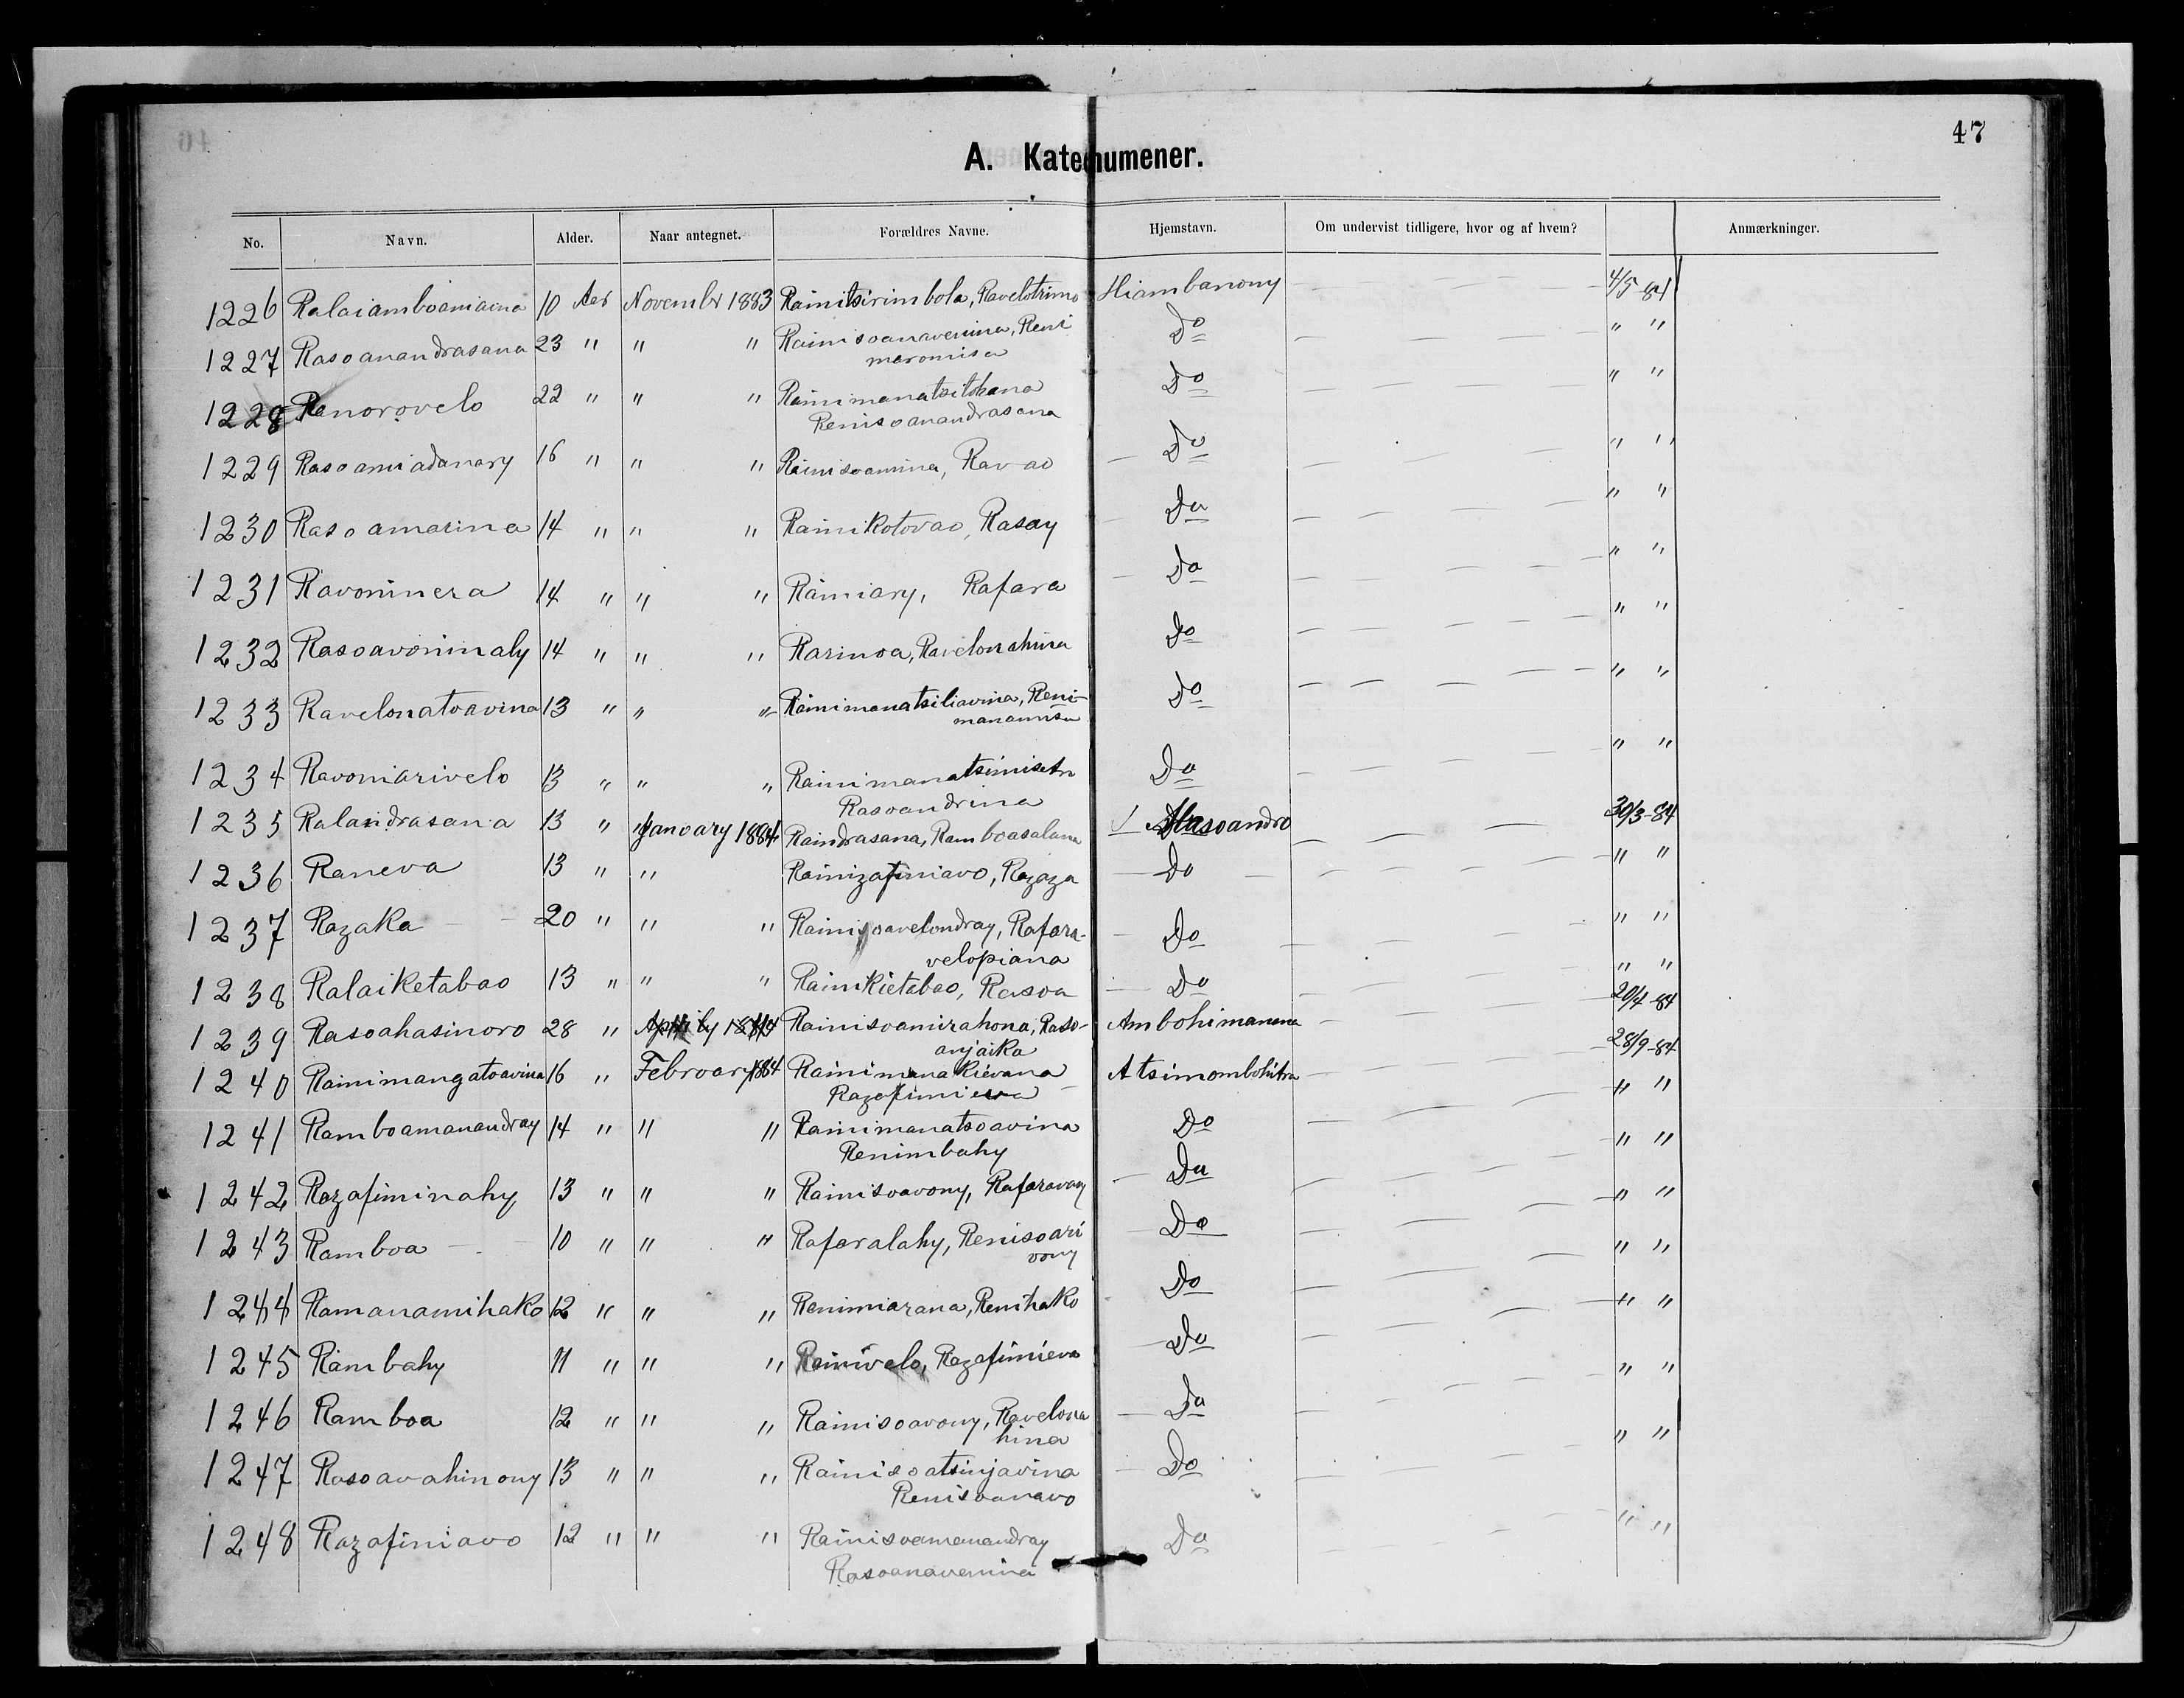 47
A. Katechumener.
No. Navn. Alder. Naar antegnet. Forældres Navne. Hjemstavn. Om undervist tidligere, hvor og af hvem? Anmærkninger.
1226 Ralaiamboamiaina 10 Aar Novembr 1883 Rainitsirimbola, Ravelotrimo Hiambanony 4/5-84
1227 Rasoanandrasana 23 " " " Rainisoanavenina, Reni Do " "
maromisa
1228 Ranorovelo 22 " " " Rainimanatsitohana Do " "
Renisoanandrasana
1229 Rasoamiadanary 16 " " " Rainisoamina, Ravao Do " "
1230 Rasoamarina 14 " " " Rainikotovao, Rasay Do " "
1231 Ravoninera 14 " " " Rainiary, Rafara Do " "
1232 Rasoavonimaly 14 " " " Rarinoa, Ravelonahina Do " "
1233 Ravelonatoavina 13 " " " Rainimanatsiliavina, Reni- Do " "
manamisa
1234 Ravoniarivelo 13 " " " Rainimanatsimisetra Do " "
Rasoandrina
1235 Ralaindrasana 13 " " January 1884 Raindrasana, Ramboasalama Masoandro 30/3-84
1236 Raneva 13 " " Rainizafiniavo, Razaza Do " "
1237 Razaka 20 " " " Rainisoavelondray, Rafara- Do " "
velopiana
1238 Ralaiketabao 13 " " " Rainikietabao, Rasoa Do " "
1239 Rasoahasinoro 28 " Rainisoamirahona, Raso- Ambohimanana 20/4-84
anjaika
1240 Rainimangatoavina 16 " Februar 1884 Rainimanakievana Atsimombohitra 28/9-84
Razafimieva " "
1241 Ramboamanandray 14 " " " Rainimanatsoavina Do
Renimbahy " "
1242 Razafiminahy 13 " " " Rainisoavony, Rafaravavy Do
1243 Ramboa 10 " " " Rafaralahy, Renisoari Do " "
vony
1244 Ramanamihako 12 " " " Renimiarana, Renihako Do " "
1245 Rambahy 11 " " " Rainivelo, Razafimieva Do " "
1246 Ramboa 12 " " " Rainisoavony, Ravelona Do " "
hina
1247 Rasoavahinony 13 " " " Rainisoatsinjavina Do " "
Renisoanavo
1248 Razafiniavo 12 " " " Rainisoamanandray Do " "
Rasoanavenina